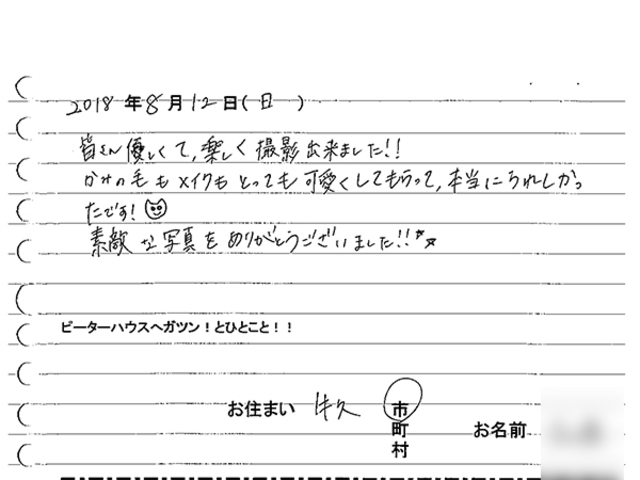 2018 年 8 月 12 日 ( 日 )
皆さん優しくて、楽しく撮影出来ました!!
かみの毛もメイクもとっても可愛くしてもらって、本当にうれしかっ
たです!
素敵な写真をありがとうございました!!
ピーターハウスへガツン!とひとこと!!
お住まい 牛久 市
町
村
お名前